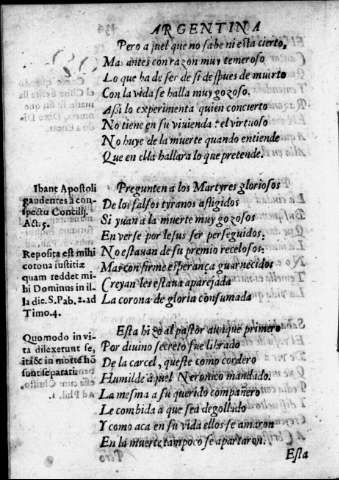 ARGENTINA
Pero aquel que no sabe ni esta cierto,
Mas antes con razon muy temeroso
Lo que ha de ser de si despues de muerto
Con la vida se halla muy gozoso.
Assi lo experimenta quien concierto
No tiene en su viuienda: el virtuoso
No huye de la muerte quando entiende
Que en ella hallara lo que pretende.
Ibant Apostoli
gaudentes à con-
spectu Concilij.
Act. 5.
Pregunten a los Martyres gloriosos
De los falsos tyranos afligidos
Si yuan a la muerte muy gozosos
En verse por Iesus ser perseguidos:
No estauan de su premio recelosos:
Mas con firme esperança guarnecidos
Creyan les estaua aparejada
La corona de gloria consumada
Reposita est mihi
corona iustitiæ
quam reddet mi-
hi Dominus in il-
la die. S. Pab. 2. ad
Timo. 4.
Esta hizo al pastor aunque primero
Por diuino secreto fue librado
De la carcel, que este como cordero
Humilde aquel Neronico mandado.
La mesma a su querido compañero
Le combida a que sea degollado
Y como aca en su vida ellos se amaron
En la muerte tampoco se apartaron.
Quomodo in vi-
ta dilexerunt se,
ita & in morte nõ
sunt separati
Esta